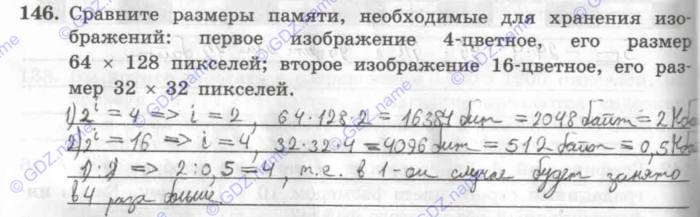 146. Сравните размеры памяти, необходимые для хранения изо-
бражений: первое изображение 4-цветное, его размер
64 × 128 пикселей; второе изображение 16-цветное, его раз-
мер 32 × 32 пикселей.
1) 2^i = 4 => i = 2, 64·128·2 = 16384 бит = 2048 байт = 2 Кб
2) 2^i = 16 => i = 4, 32·32·4 = 4096 бит = 512 байт = 0,5 Кб
=> 2 : 0,5 = 4, т.е. в 1-ом случае будет занято
в 4 раза больше.
© GDZ.name